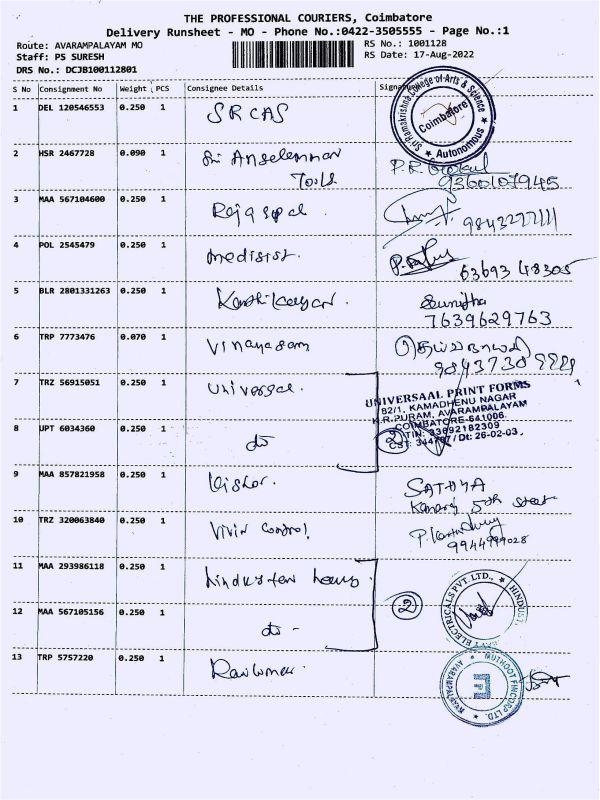 THE PROFESSIONAL COURIERS, Coimbatore
Delivery Runsheet - MO - Phone No.:0422-3505555 - Page No.:1
Route: AVARAMPALAYAM MO
RS No.: 1001128
Staff: PS SURESH
RS Date: 17-Aug-2022
DRS No.: DCJB100112801
S No Consignment No Weight PCS Consignee Details Signature
1 DEL 120546553 0.250 1 SRCAS
Sri Ramakrishna College of Arts & Science
Coimbatore
★ Autonomous ★
2 HSR 2467728 0.090 1 Sri
9360107945
3 MAA 567104600 0.250 1 Rajagopal
4 POL 2545479 0.250 1 medisist.
63693 48305
5 BLR 2801331263 0.250 1 Karthikeyan.
Sunitha
7639629763
6 TRP 7773476 0.070 1 Vinayagam
7 TRZ 56915051 0.250 1 Universal.
UNIVERSAAL PRINT FORMS
82/1, KAMADHENU NAGAR
K.R.PURAM, AVARAMPALAYAM
COIMBATORE-641006.
TIN: 33692182309
/ Dt: 26-02-03
8 UPT 6034360 0.250 1 do
2
9 MAA 857821958 0.250 1 Kishor.
SATHYA
5th street
10 TRZ 320063840 0.250 1 Vivin Control
9944999028
11 MAA 293986118 0.250 1 hindustan
ELECTRICALS PVT. LTD., ★ HINDUST
12 MAA 567105156 0.250 1 do -
2
13 TRP 5757220 0.250 1
MUTHOOT FINCORP LTD. ★ AVARAMPALAYAM ★